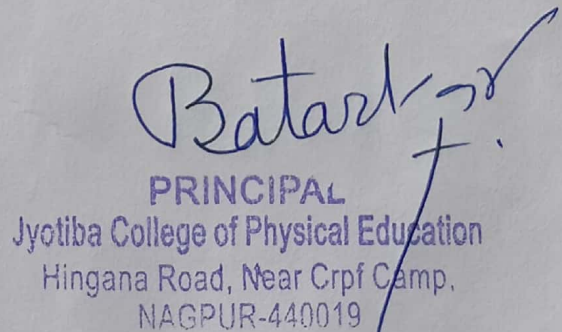 PRINCIPAL
Jyotiba College of Physical Education
Hingana Road, Near Crpf Camp,
NAGPUR-440019